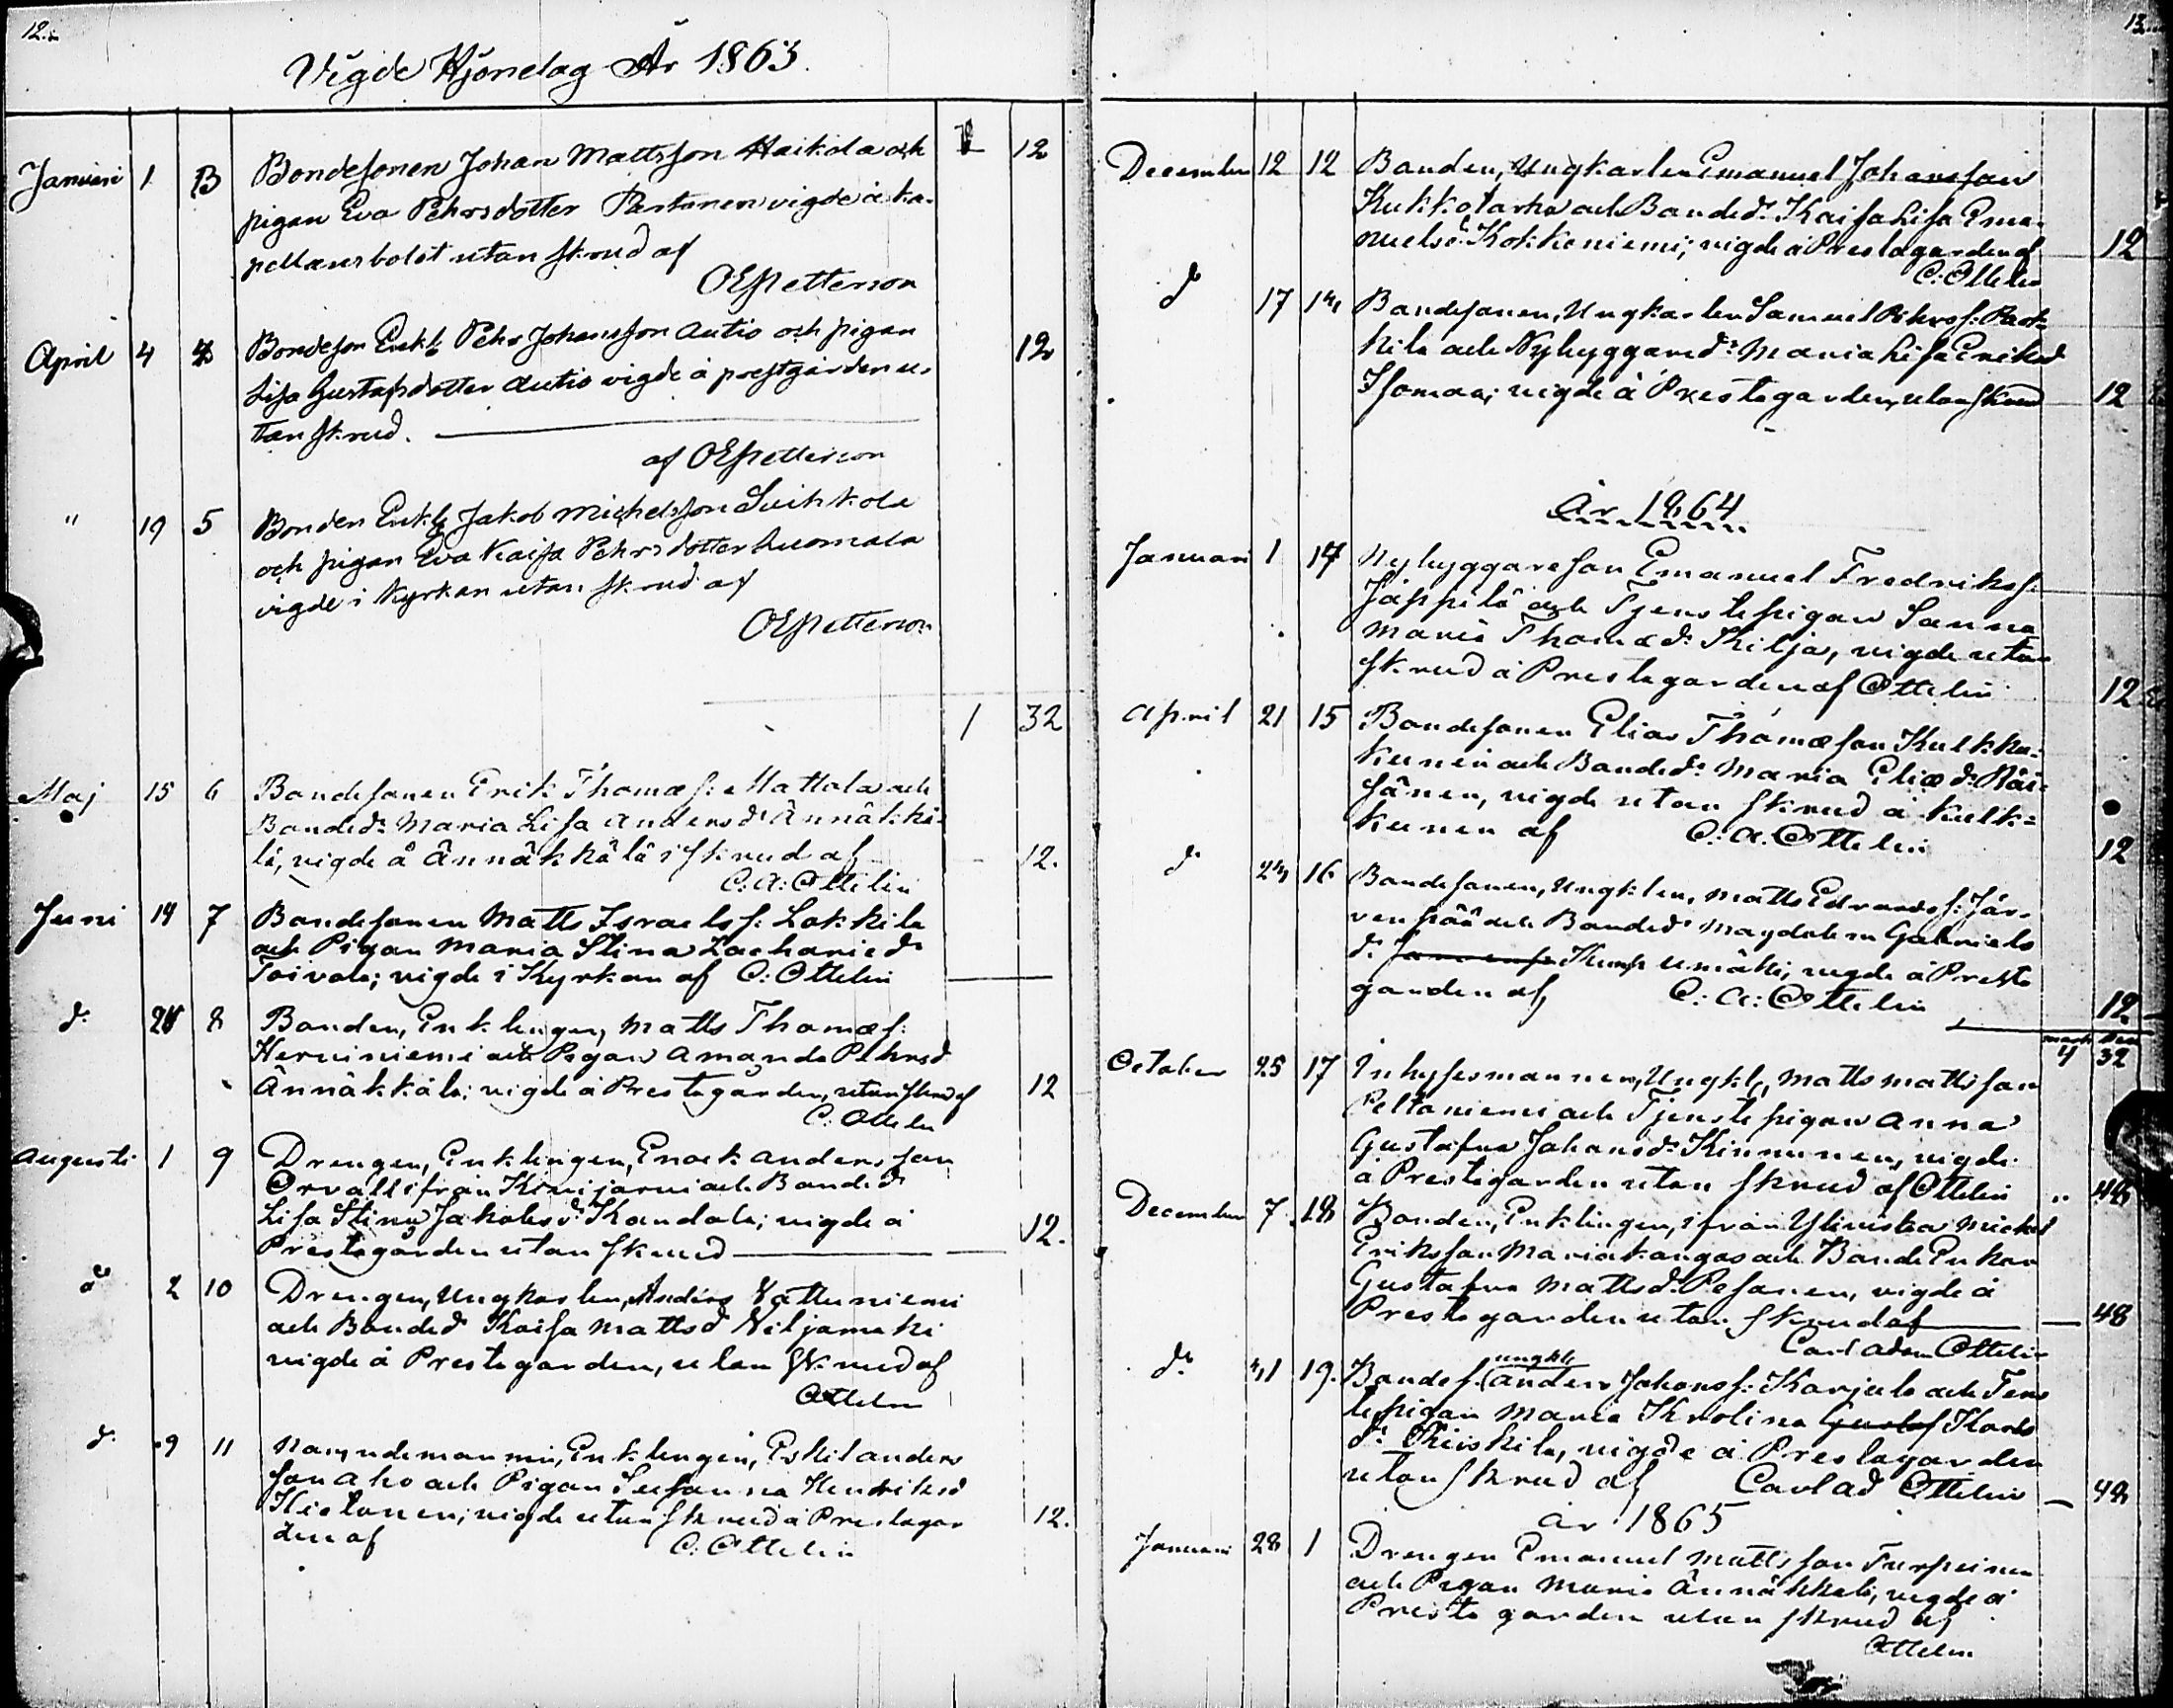 12.
Vigde Hjonelag År 1863.
Januari 1 B Bondesonen Johan Mattsson Haikola och 12
pigan Eva Pehrsdotter Partanen vigde å ka-
pellansbolet utan skrud af
OEPetterson
April 4 4 Bondeson Enkl. Pehr Johansson Autio och pigan 12
Lisa Gustafsdotter Autio vigde å prestgården u-
tan skrud.
af OEPetterson
" 19 5 Bonden Enkl. Jakob Michelsson Suikkola
och pigan Eva Kaisa Pehrsdotter Luomala
vigde i Kyrkan utan skrud af
OEPetterson
1 32
Maj 15 6 Bondesonen Erik Thomæs: Mattala och
Bonded: Maria Lisa Andersd: Ännäkkä-
lä, vigde å Ännäkkälä i skrud af 12.
C: A: Ottelin
Juni 14 7 Bondesonen Matts Israelss: Lokkila
och Pigan Maria Stina Zachariæd:
Toivola; vigde i Kyrkan af C: Ottelin
d: 8 Bonden, Enklingen, Matts Thomæs:
Herviniemi och Pigan Amanda Pehrsd
Ännäkkälä; vigde å Prestegården, utan skrud af 12
C: Ottelin
Augusti 1 9 Drengen, Enklingen, Enoch Andersson
Orvall ifrån Kemijärvi och Bonded:
Lisa Stina Jakobsd: Kandola; vigde å 12.
Prestegården utan skrud
do 2 10 Drengen, Ungkarlen, Anders Vattuniemi
och Bonded Kaisa Mattsd Viljamaki
vigde å Prestegarden, utan skrud af
Ottelin
d: 9 11 Nämndemannen, Enklingen, Eskil Anders
son Aho och Pigan Susanna Hendriksd
Hietanen; vigde utan skrud å Prestegar 12.
den af C: Ottelin
13.
December 12 12 Bonden, Ungkarlen Emanuel Johansson
Kukkolarha och Bonded: Kaisa Lisa Ema-
nuelsd: Kokkoniemi; vigde å Prestegarden af 12
C: Ottelin
do 17 Bondesonen, Ungkarlen Samuel Pehrss:
kila och Nybyggared: Maria Lisa Eriksd
Isomaa; vigde å Prestegarden, utan skrud 12
År 1864
Januari 1 14 Nybyggareson Emanuel Fredrikss:
Jäppilä och Tjenstepigan Sanna
Maria Thomæd: Kilja, vigde utan
skrud å Prestegarden af Ottelin 12
April 21 15 Bondesonen Elias Thomæson Kulkku-
kunen och Bonded: Maria Eliæd: Räi-
sänen, vigde utan skrud å Kulk=
kunen af C. A. Ottelin 12
do 24 16 Bondesonen, Ungklen, Matts Edvardss: Jär-
venpää och Bonded: Magdalena Gabriels
d: Kumpumäki, vigde å Preste
garden af C: A: Ottelin 12
mark 4 32
October 25 17 Inhysesmannen, Ungkl, Matts Mattsson
Peltoniemi och Tjenstepigan Anna
Gustafva Johansd: Kinnunen, vigde
å Prestegarden utan skrud af Ottelin " 48
December 7 18 Bonden, Enklingen, ifrån Ylivieska Mickel
Eriksson Mariakangas och BondeEnkan
Gustafva Mattsd: Pesonen, vigde å
Prestegarden utan skrud af 48
Carl Adam Ottelin
do 19. Bondes. ungkl Anders Johanss: Karjula och Tens
tepigan Maria Karolina Gustaf Karls
d: Kiiskilä, vigde å Prestegarden
utan skrud af Carl Ad Ottelin 48
År 1865
Januari 28 1 Drengen Emanuel Mattsson Turpeinen
och Pigan Maria Ännäkkälä, vigde å
Preste garden utan skrud af
Ottelin